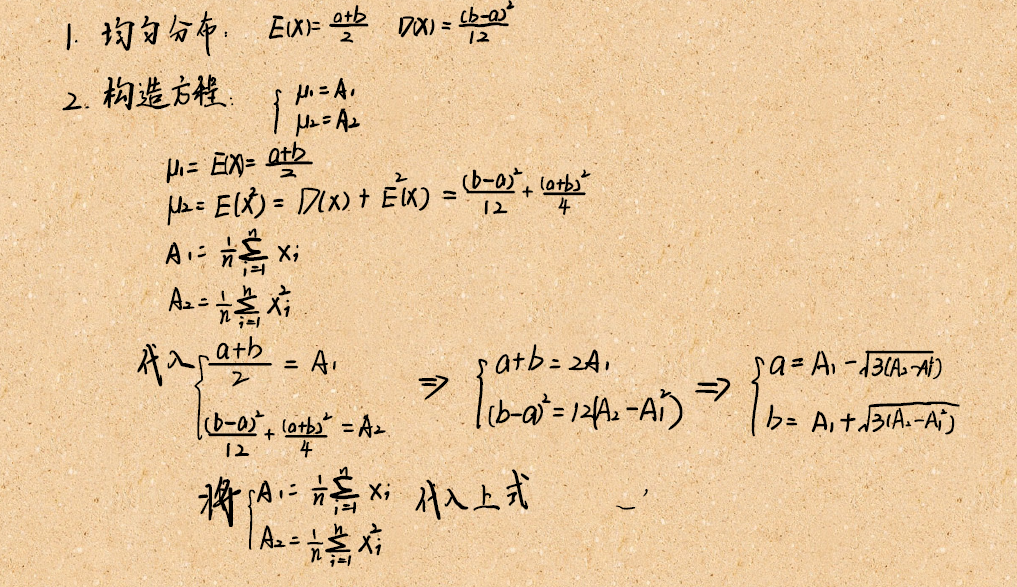 1. 均匀分布: E(X)=\frac{a+b}{2} D(X)=\frac{(b-a)^2}{12}
2. 构造方程: { μ₁=A₁
μ₂=A₂
μ₁=E(X)=\frac{a+b}{2}
μ₂=E(X²)=D(X)+E²(X)=\frac{(b-a)^2}{12}+\frac{(a+b)^2}{4}
A₁=\frac{1}{n}\sum_{i=1}^{n} X_i
A₂=\frac{1}{n}\sum_{i=1}^{n} X_i^2
代入 { \frac{a+b}{2}=A₁ ⇒ { a+b=2A₁ ⇒ { a=A₁-\sqrt{3(A₂-A₁²)}
\frac{(b-a)^2}{12}+\frac{(a+b)^2}{4}=A₂ (b-a)²=12(A₂-A₁²) b=A₁+\sqrt{3(A₂-A₁²)}
将 { A₁=\frac{1}{n}\sum_{i=1}^{n} X_i 代入上式
A₂=\frac{1}{n}\sum_{i=1}^{n} X_i^2